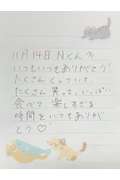 11月14日 Nくんへ
いつもいつもありがとう!
たくさんくっついて、
たくさん笑って、いっぱい
食べて、楽しすぎる
時間をいつもありが
とう♡